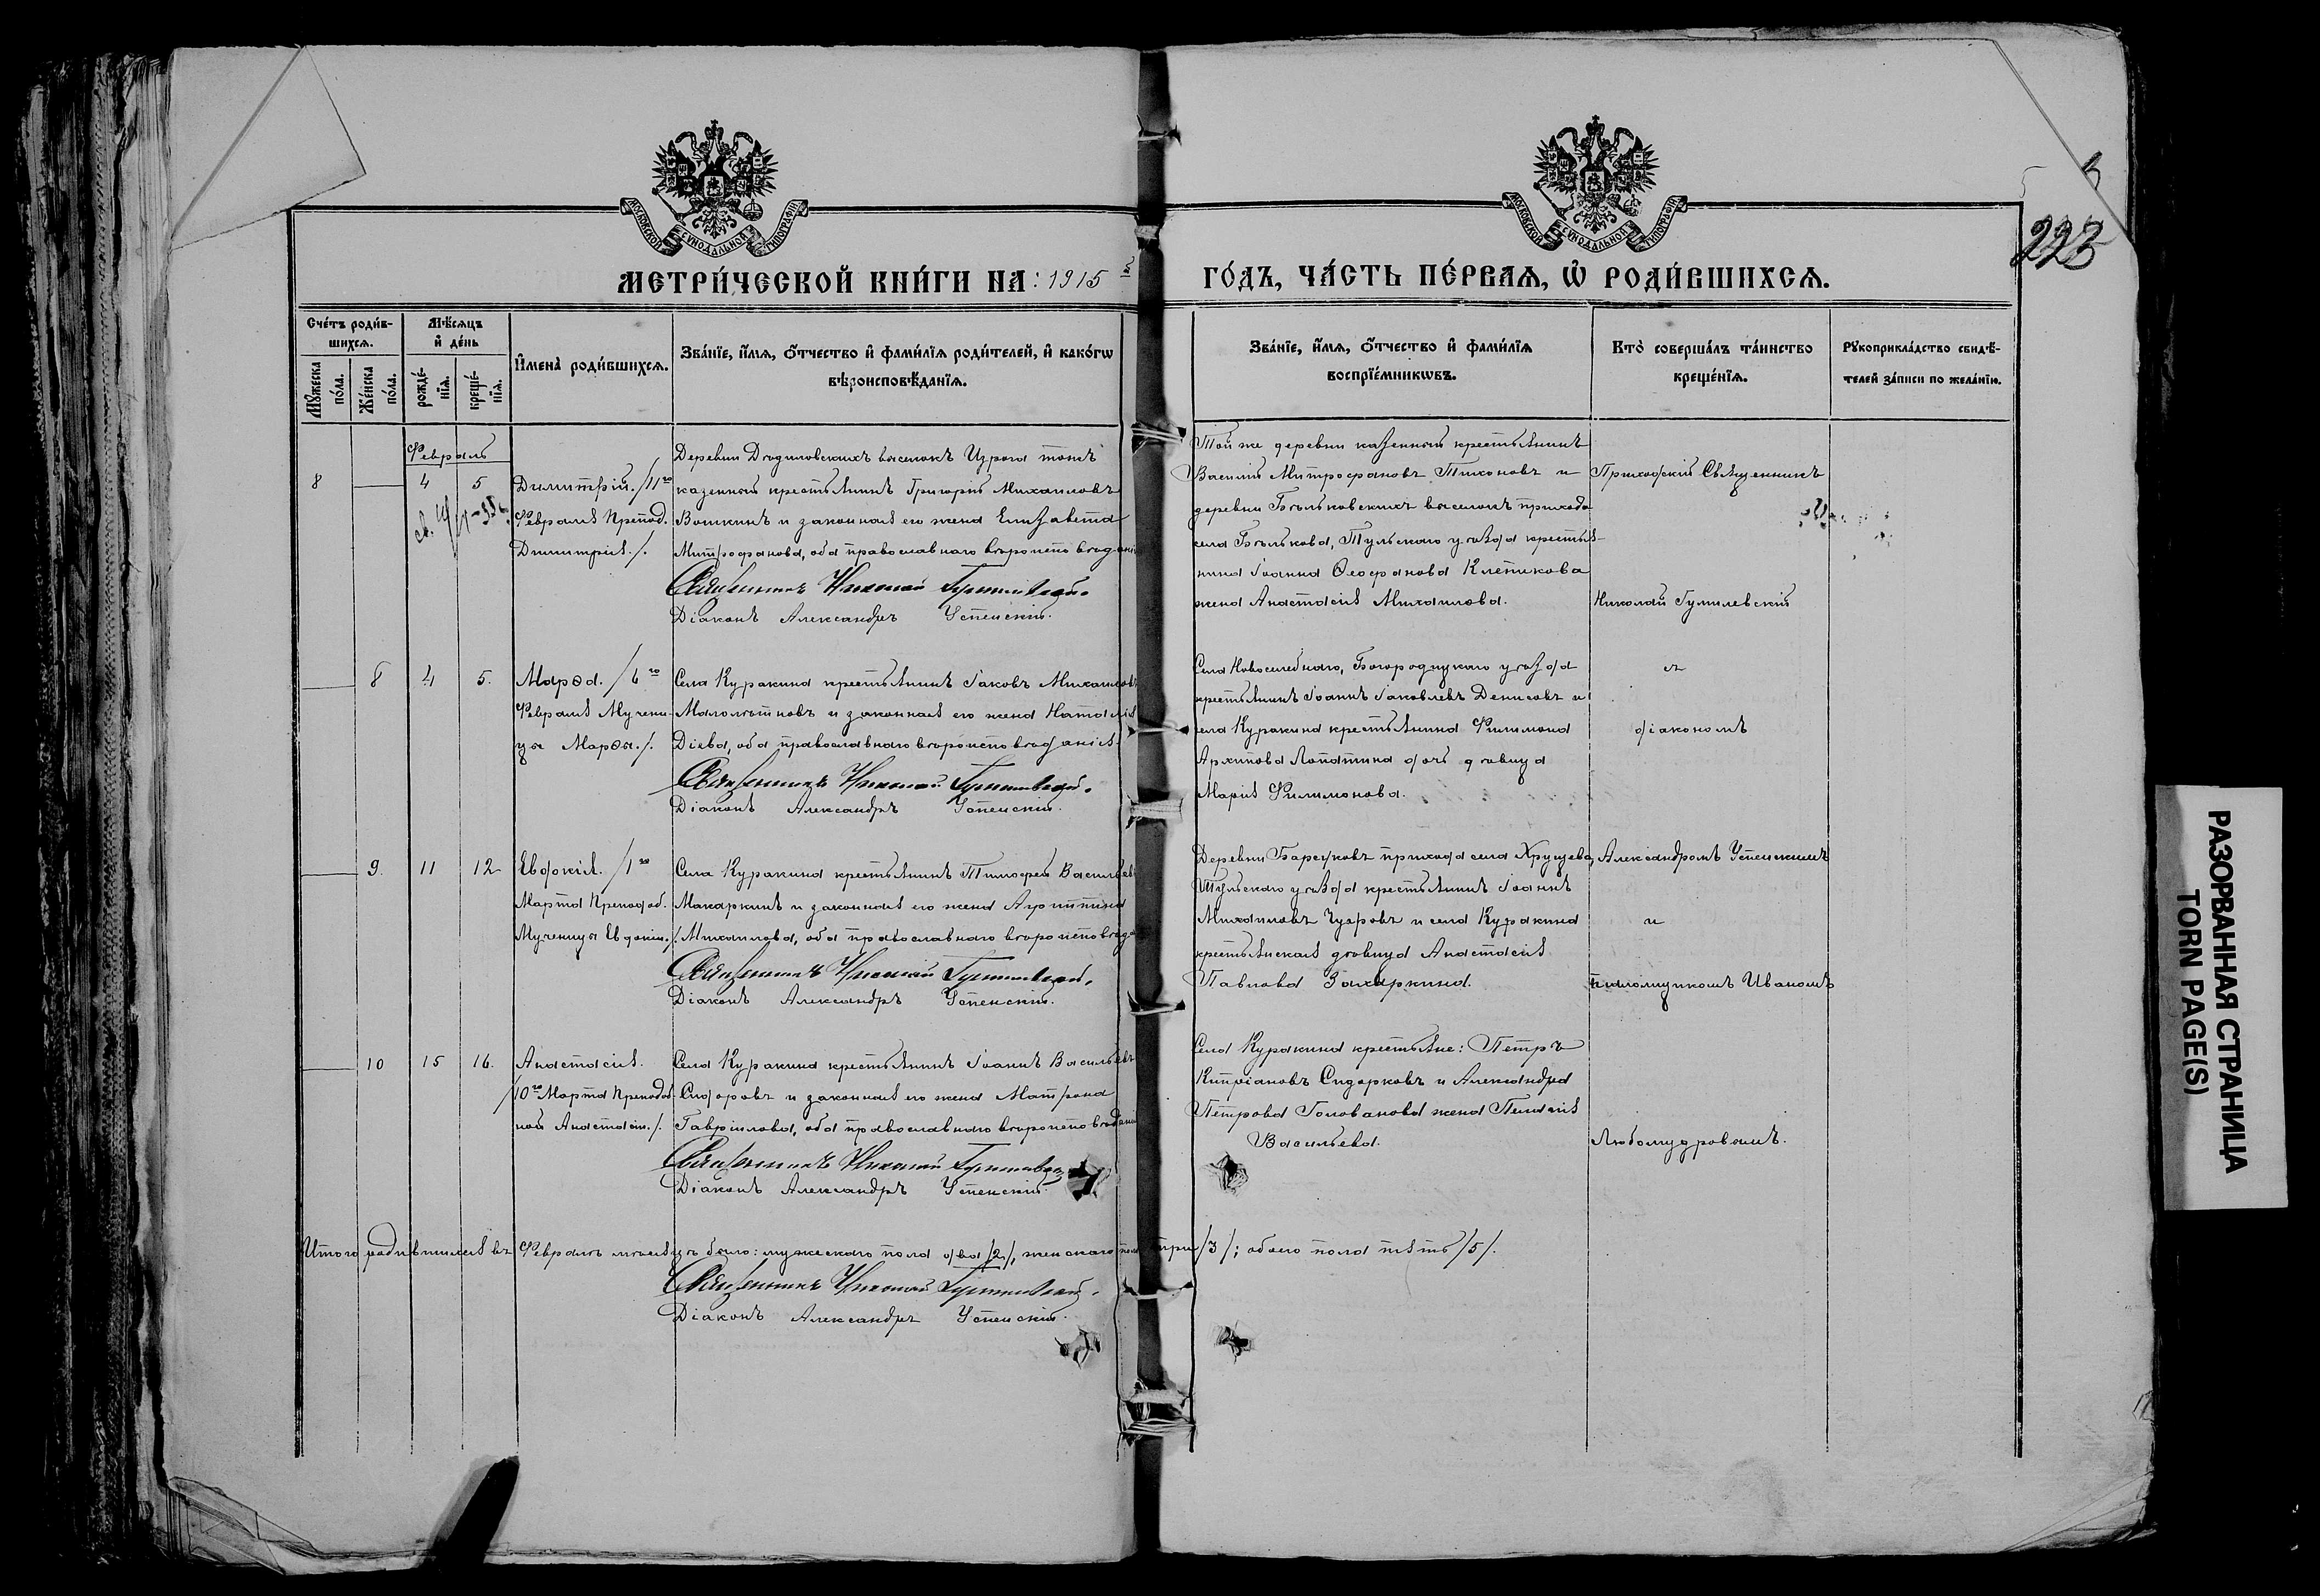 МОСКОВСКОЙ СѴНОДАЛЬНОЙ ТИПОГРАФІИ
МОСКОВСКОЙ СѴНОДАЛЬНОЙ ТИПОГРАФІИ
223
МЕТРИ́ЧЕСКОЙ КНИ́ГИ НА: 1915 й
ГО́ДЪ, ЧА́СТЬ ПЕ́РВАѦ, Ѽ РОДИ́ВШИХСѦ.
Сче́тъ роди́в-
шихсѧ.
Мꙋ́жеска по́ла.
Же́нска по́ла.
Мѣ́сѧцъ
и҆ де́нь
рожде́-
нїѧ.
креще́-
нїѧ.
И҆мена̀ роди́вшихсѧ.
Зва́нїе, и҆́мѧ, ѻ҆́тчество и҆ фами́лїѧ роди́телей, и҆ како́гѡ
вѣроисповѣ́данїѧ.
Зва́нїе, и҆́мѧ, ѻ҆́тчество и҆ фами́лїѧ
воспрїе́мникѡвъ.
Кто̀ соверша́лъ та́инство
креще́нїѧ.
Рꙋкоприкла́дство свидѣ́-
телей за́писи по жела́нїю.
Февраль
8 4 5 Димитрій. /11го
Февраля Препод.
Димитрія./.
Деревни Дгодиловскихъ выселокъ
казенный крестьянинъ Григорій Михаиловъ
Вошкинъ и законная его жена Елизавета
Митрофанова, оба православнаго вѣроисповѣданія
Священникъ Николай Гумилевскій.
Діаконъ Александръ Успенскій.
Той же деревни казенный крестьянинъ
Василій Митрофановъ Тихоновъ и
деревни Бѣльковскихъ выселокъ прихода
села Бѣлькова, Тульскаго уѣзда крестья-
нина Іоанна Ѳеофанова Клепикова
жена Анастасія Михаилова.
Приходскій Священникъ
Николай Гумилевскій
8 4 5. Марѳа. /6го
Февраля Мучени-
цы Марѳы./.
Села Куракина крестьянинъ Іаковъ Михаиловъ
Малолѣтновъ и законная его жена Наталія
Діева, оба православнаго вѣроисповѣданія
Священникъ Николай Гумилевскій.
Діаконъ Александръ Успенскій.
Села Новоселебнаго, Богородицкаго уѣзда
крестьянинъ Іоаннъ Іаковлевъ Денисовъ и
села Куракина крестьянина Филимона
Архипова Лопатина дочь дѣвица
Марія Филимонова.
съ
діакономъ
9. 11 12 Евдокія. /1го
Марта Преподоб.
Мученицы Евдокіи./.
Села Куракина крестьянинъ Тимофей Васильевъ
Макаркинъ и законная его жена Агриппина
Михаилова, оба православнаго
Священникъ Николай Гумилевскій.
Діаконъ Александръ Успенскій.
Деревни прихода села Хрущева,
Тульскаго уѣзда крестьянинъ Іоаннъ
Михаиловъ и села Куракина
крестьянская дѣвица Анастасія
Павлова Захаркина.
Александромъ Успенскимъ
и
псаломщикомъ Иваномъ
10 15 16. Анастасія.
/10го Марта Преподоб-
ной Анастасіи./.
Села Куракина крестьянинъ Іоаннъ Васильевъ
Сидоровъ и законная его жена Матрона
Гавріилова, оба православнаго вѣроисповѣданія
Священникъ Николай Гумилевскій
Діаконъ Александръ Успенскій.
Села Куракина крестьяне: Петръ
Кипріановъ Сидорковъ и Александра
Петрова Голованова жена Пелагія
Васильева.
Любомудровымъ.
Итого родившихся въ Февралѣ мѣсяцѣ было: мужескаго пола два /2/, женскаго пола три /3/; обоего пола пять /5/.
Священникъ Николай Гумилевскій.
Діаконъ Александръ Успенскій.
РАЗОРВАННАЯ СТРАНИЦА
TORN PAGE(S)